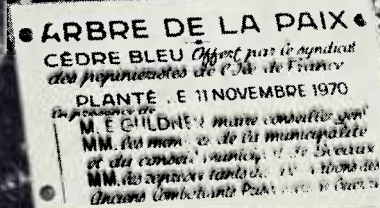 ARBRE DE LA PAIX
CÈDRE BLEU Offert par le syndicat
des pépiniéristes de de France
PLANTÉ LE 11 NOVEMBRE 1970
En présence de
M. E GULDNER maire conseiller gen
MM. des de la municipalité
et du conseil municipal de Sceaux
MM. des représentants des des
Anciens Combattants